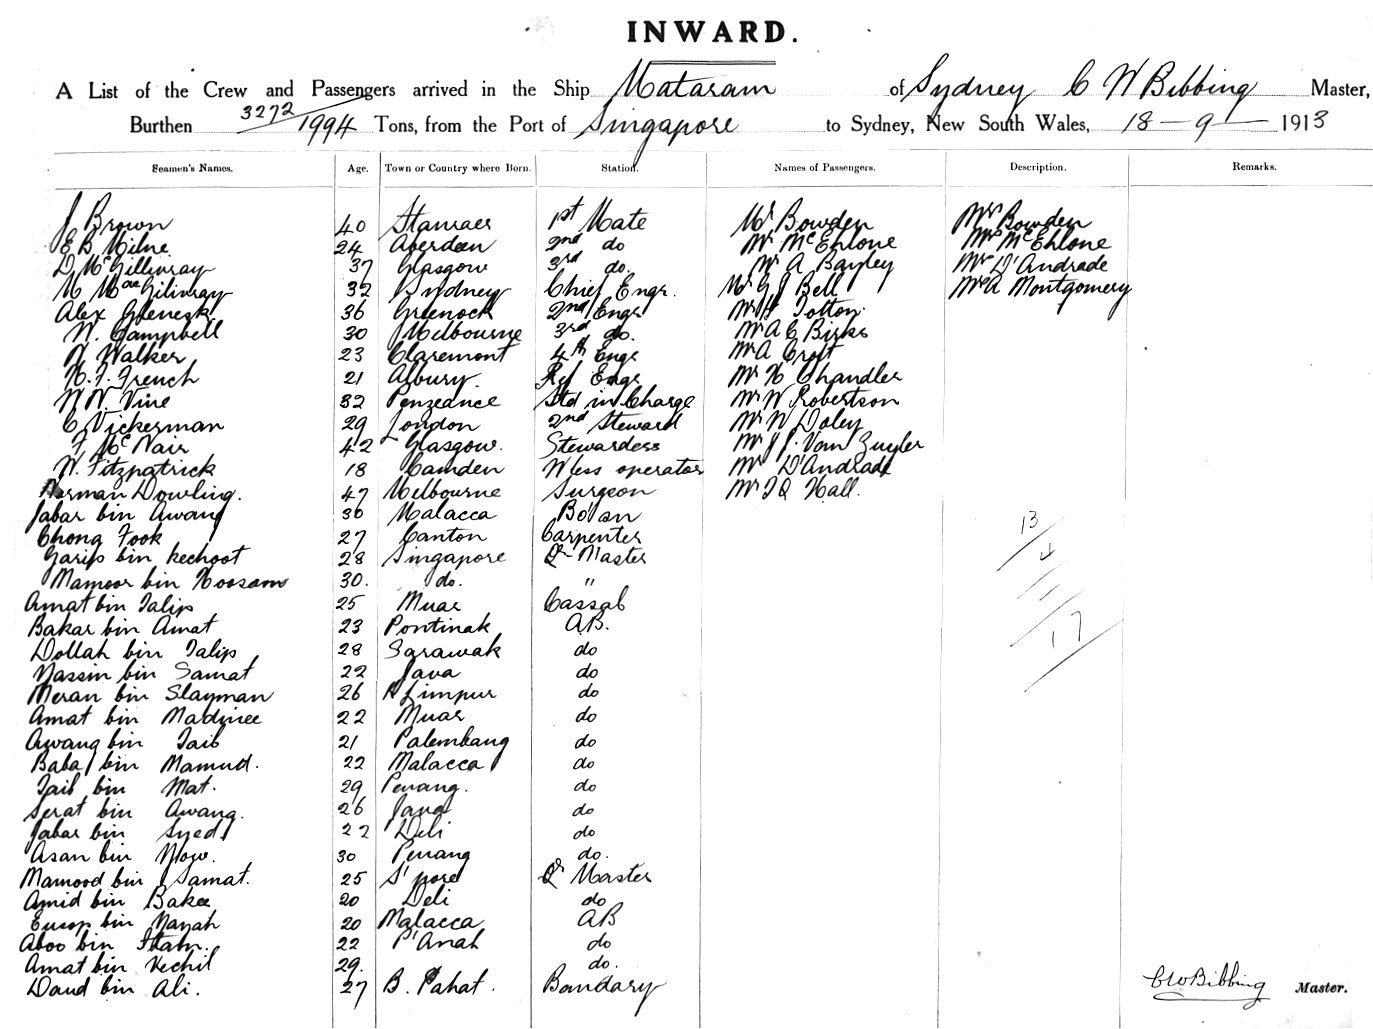 INWARD.
A List of the Crew and Passengers arrived in the Ship Mataram of Sydney C W Bibbing Master,
Burthen 3272/1994 Tons, from the Port of Singapore to Sydney, New South Wales, 18 - 9 - 1913
Seamen's Names. Age. Town or Country where Born. Station. Names of Passengers. Description. Remarks.
J Brown 40 1st Mate Mr Bowden Mrs Bowden
E B Milne 24 Aberdeen 2nd do Mr McEhlone Mrs McEhlone
D McGillivray 37 Glasgow 3rd do. Mr A Bayley Mrs D'Andrade
32 Sydney Chief Engr. Mr G J Bell Mrs A Montgomery
Alex 36 Greenock 2nd Engr Mr H Totton
W. Campbell 30 Melbourne 3rd do. Mr A C Birks
W Walker 23 Claremont 4th Engr Mr A Croft
H. J. French 21 Albury. Ref Engr Mr H Chandler
W W Vine 32 Penzeance Std in Charge Mr W Robertson
C Vickerman 29 London 2nd Steward Mr W Doley
F McNair 42 Glasgow. Stewardess Mr J J. Van Zuyler
W. Fitzpatrick 18 Camden W'less operator Mr D'Andrade
Herman Dowling. 47 Melbourne Surgeon Mr T Q Hall.
Jabar bin Awang 36 Malacca Bo'an
Chong Fook 27 Canton Carpenter
Garip bin Kechoot 28 Singapore Qr Master
Mamoor bin Hoosam 30. do. "
Amat bin Talip 25 Muar Cassab
Bakar bin Amat 23 Pontinak AB.
Dollah bin Talip 28 Sarawak do
Nassim bin Samat 22 Java do
Meran bin Slayman 26 K Limpur do
Amat bin Madinee 22 Muar do
Awang bin Taib 21 Palembang do
Baba bin Mamud. 22 Malacca do
Taib bin Mat. 29 Penang. do
Serat bin Awang. 26 Java do
Jabar bin Syed 22 Deli do
Asan bin Mow. 30 Penang do.
Mamood bin Samat. 25 S'pore Qr Master
Amid bin Bakee 20 Deli do
Eusop bin Nayah 20 Malacca AB
Aboo bin 22 P'Anah do
Amat bin Kechil 29. do.
Daud bin Ali. 27 B. Pahat. Bandary
13
4
17
C W Bibbing Master.